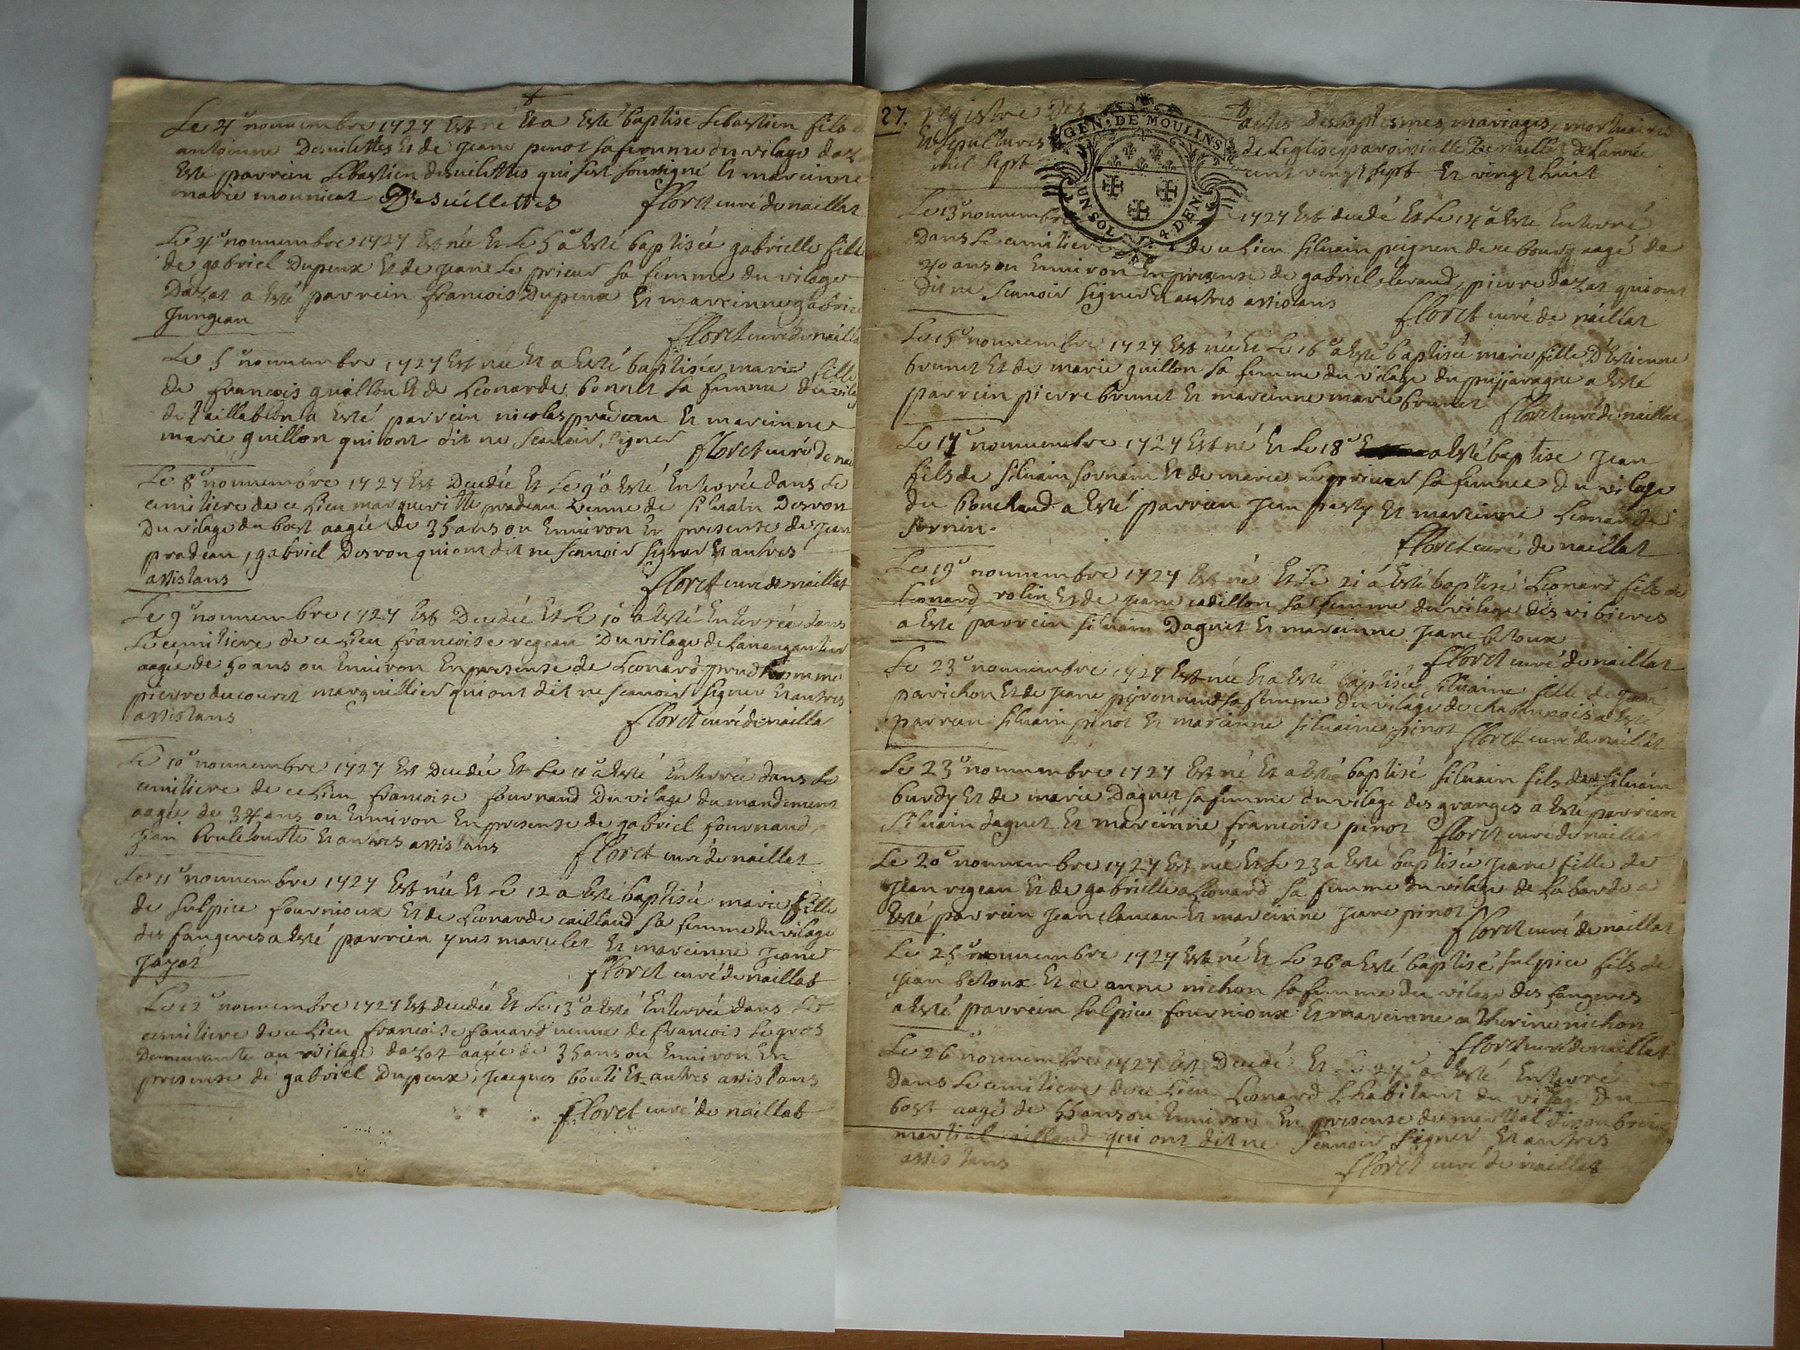 Le 4e nouuembre 1727 Est né Et a Esté baptisé Sebastien fils
antoinne Desuilettes Et de jeane pinot sa femme du vilage dazat
Este parrein Sebastien desuilettes qui sest soussigné Et mareinne
marie mounicat Desuillettes floret curé de naillat
Le 4e nouuembre 1727 Est née Et Le 5e a Esté baptisée gabrielle fille
de gabriel Dupeux Et de jeane Le prieur sa femme du vilage
Dazat a Esté parrein francois Dupeux Et mareinne gabrielle
Jungean
floret curé de naillat
Le 5e nouuembre 1727 Est née Et a Esté baptisée marie fille
de francois guillon Et de Leonarde bonnet sa femme du vilage
de a Esté parrein nicolas pradeau Et mareinne
marie guillon qui ont dit ne scauoir signer floret curé de nai
Le 8e nouuembre 1727 Est Decedée Et Le 9e a Esté Enterrée dans Le
cemitiere de ce Lieu margueritte pradeau veuue de siluain Desvon
Du vilage du bost aagée de 35 ans ou Enuiron En presense de jean
pradeau, gabriel Desvon qui ont dit ne scauoir signer Et autres
assistans floret curé de naillat
Le 9e nouuembre 1727 Est Decedée Et Le 10 a Esté Enterrée dans
Le cemitiere de ce Lieu francoise regeau Du vilage de
aagée de 50 ans ou Enuiron En presense de Leonard prudhomme
pierre ducouret marguillier qui ont dit ne scauoir signer Et autres
assistans floret curé de naillat
Le 10e nouuembre 1727 Est Decedée Et Le 11e a Esté Enterrée dans Le
cemitiere de ce Lieu francoise fournaud Du vilage du mandement
aagée de 34 ans ou Enuiron En presense de gabriel fournaud,
jean Et autres assistans floret curé de naillat
Le 11e nouuembre 1727 Est née Et Le 12 a Esté baptisée marie fille
de sulpice fournioux Et de Leonarde caillaud sa femme du vilage
des fangeres a Esté parrein Et mareinne jeane
jazat floret curé de naillat
Le 12e nouuembre 1727 Est decedée Et Le 13e a Esté Enterrée dans Le
cemitiere de ce Lieu francoise fanard veuue de francois Le gros
Demeurante au vilage dazat aagée de 35 ans ou Enuiron En
presense de gabriel Dupeux, jacques bouti Et autres assistans
floret curé de naillat
27. registre Des actes Des baptesmes, mariages, mortuaires
Et sepultures de Leglise paroissialle De naillat de Lannée
mil sept cent vingt sept Et vingt huit
GEN. DE MOULINS
UN SOL 4 DEN.
Le 13e nouuembre 1727 Est decedé Et Le 14e a Esté Enterré
Dans Le cemitiere de ce Lieu siluain peignen de ce bourg aagé de
40 ans ou Enuiron En presense de gabriel leraud, pierre dazat qui ont
dit ne scauoir signer Et autres assistans floret curé de naillat
Le 15e nouuembre 1727 Est née Et Le 16e a Esté baptisée marie fille D'Estienne
brunet Et de marie guillon sa femme du vilage du puijaragne a Esté
parrein pierre brunet Et mareinne marie brunet floret curé de naillat
Le 17e nouuembre 1727 Est né Et Le 18e a Esté baptisé jean
fils de siluain sornin Et de marie Le prieur sa femme du vilage
du bouchaud a Esté parrein jean pasty Et mareinne Leonarde
sornin. floret curé de naillat
Le 19e nouuembre 1727 Est né Et Le 21 a Esté baptisé Leonard fils de
Leonard rolin Et de jeane cadillon sa femme du vilage des ribieres
a Esté parrein siluain Daguet Et mareinne jeane Letoux
floret curé de naillat
Le 23e nouuembre 1727 Est née Et a Esté baptisée siluaine fille de jean
parichon Et de jeane pironnaud sa femme Du vilage de chabannois a Esté
parrein siluain pinot Et mareinne siluaine pinot floret curé de naillat
Le 23e nouuembre 1727 Est né Et a Esté baptisé siluain fils de siluain
burdy Et de marie Daguet sa femme du vilage des granges a Esté parrein
siluain daguet Et mareinne francoise pinot floret curé de naillat
Le 20e nouuembre 1727 Est née Et Le 23 a Esté baptisée jeane fille de
jean regeau Et de gabrielle Leonard sa femme du vilage de La borde a
Esté parrein jean claueau Et mareinne jeane pinot
floret curé de naillat
Le 25e nouuembre 1727 Est né Et Le 26 a Esté baptisé sulpice fils de
jean Letoux Et de anne nichon sa femme du vilage des fangeres
a Esté parrein sulpice fournioux Et mareinne catherine nichon
floret curé de naillat
Le 26e nouuembre 1727 Est Decedé Et Le 27e a Esté Enterré
dans Le cemitiere de ce Lieu Leonard Lhabitant du vilage du
bost aagé de 55 ans ou Enuiron En presense de martial
martial caillaud qui ont dit ne scauoir signer Et autres
assistans floret curé de naillat